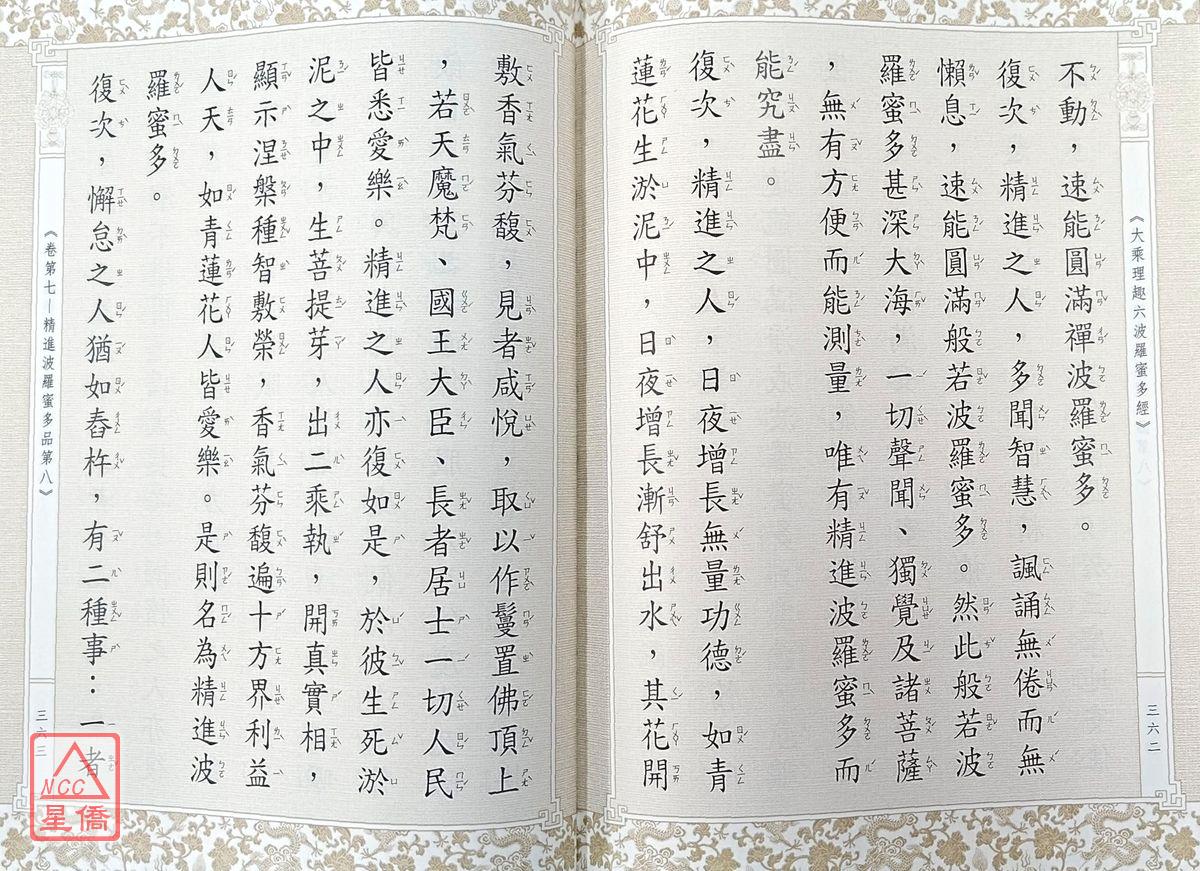 《大乘理趣六波羅蜜多經》
三六二
不動，速能圓滿禪波羅蜜多。
復次，精進之人，多聞智慧，諷誦無倦而無
懶息，速能圓滿般若波羅蜜多。然此般若波
羅蜜多甚深大海，一切聲聞、獨覺及諸菩薩
，無有方便而能測量，唯有精進波羅蜜多而
能究盡。
復次，精進之人，日夜增長無量功德，如青
蓮花生淤泥中，日夜增長漸舒出水，其花開
敷香氣芬馥，見者咸悅，取以作鬘置佛頂上
，若天魔梵、國王大臣、長者居士一切人民
皆悉愛樂。精進之人亦復如是，於彼生死淤
泥之中，生菩提芽，出二乘執，開真實相，
顯示涅槃種智敷榮，香氣芬馥遍十方界利益
人天，如青蓮花人皆愛樂。是則名為精進波
羅蜜多。
復次，懈怠之人猶如舂杵，有二種事：一者
《卷第七－精進波羅蜜多品第八》
三六三
NCC
星僑